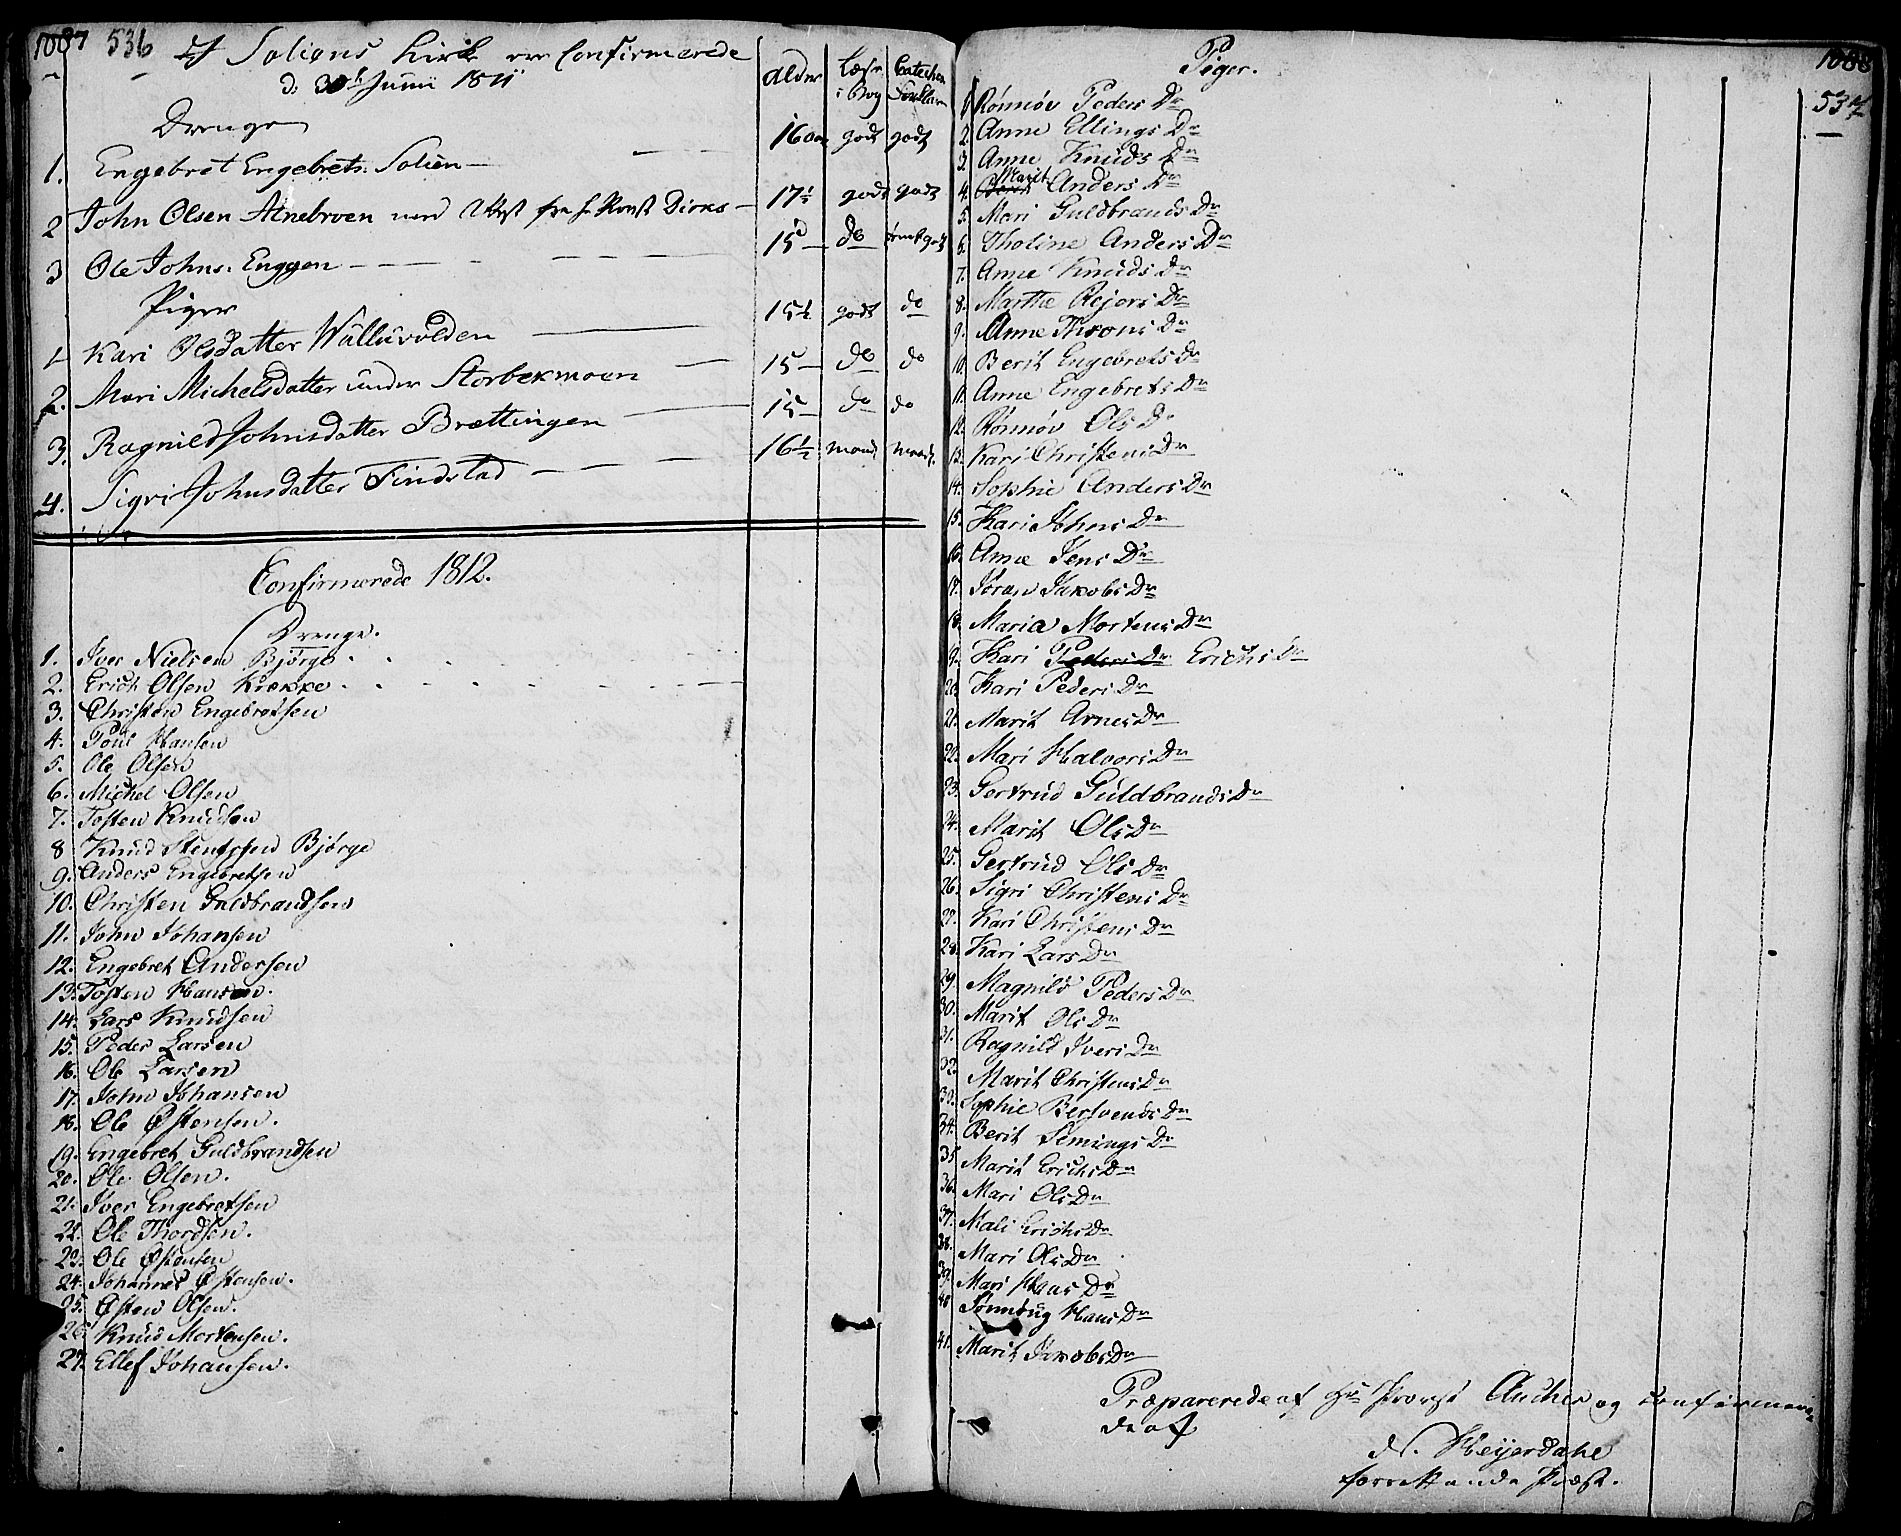 1087 536 I Soliens Kirke ere Confirmerede
d. 30th Junii 1811
Alder Læse i Bog Catechis Forklar
Drenge
1. Engebret Engebrets. Solien — 16 aar godt godt
2 John Olsen Alnebroen med Attest fra Hr Provst Dircks — 17½ godt godt
3 Ole Johns. Enggen — 15 do
Piger
1 Kari Olsdatter Wulluvolden — 15½ godt do
2. Mari Michelsdatter under Storbekmoen — 15 — do do
3. Ragnild Johnsdatter Brættingen — 15 — do do
4. Sigri Johnsdatter Findstad — 16½ maad maad.
Confirmerede 1812.
Drenge.
1. Iver Nielsen Bjørge
2. Erich Olsen Kiække
3. Christen Engebretsen
4. Poul Hansen
5. Ole Olsen
6. Michel Olsen
7. Tosten Knudsen
8 Knud Stensesen Bjørge
9. Anders Engebretsen
10. Christen Guldbrandsen
11. John Johansen
12. Engebret Andersen
13. Tosten Hansen.
14. Lars Knudsen
15. Peder Larsen
16. Ole Larsen
17. John Johansen
18. Ole Østensen.
19. Engebret Guldbrandsen
20. Ole Olsen.
21. Iver Engebretsen
22. Ole Thordsen.
23. Ole Østensen
24. Johannes Østensen.
25. Østen Olsen.
26. Knud Mortensen.
27. Ellef Johansen.
1088
537
Piger.
1. Rønnøv Peders Dr
2. Anne Ellings Dr
3. Anne Knuds Dr
4. Marit Anders Dr
5. Mari Guldbrands Dr
6. Tholine Anders Dr
7. Anne Knuds Dr
8. Marthe Rejers Dr
9. Anne Throns Dr
10. Berit Engebrets Dr
11. Anne Engebrets Dr
12. Rønnøv Ols Dr
13. Kari Christens Dr
14. Sophie Anders Dr
15. Kari Johns Dr
16. Anne Jens Dr
17. Joran Jakobs Dr
18. Maria Mortens Dr
9. Kari Peders Dr Erichs Dr
20. Kari Peders Dr
21. Marit Arnes Dr
22. Mari Halvors Dr
23. Gertrud Guldbrands Dr
24. Marit Ols Dr
25. Gertrud Ols Dr
26. Sigri Christens Dr
27. Kari Christens Dr
28. Kari Lars Dr
29 Magnild Peders Dr
30. Marit Ols Dr
31. Ragnild Ivers Dr
32. Marit Christens Dr
33. Sophie Bersvends Dr
34. Berit Semings Dr
35 Marit Erichs Dr
36. Mari Ols Dr
37. Mali Erichs Dr
38. Mari Ols Dr
39. Mari Hans Dr
40 Sønnbug Hans Dr
41. Marit Jakobs Dr
Præparerede af Hr Provst Aucher og confirmere-
de af
H. Heyerdahl
forrettende Præst.